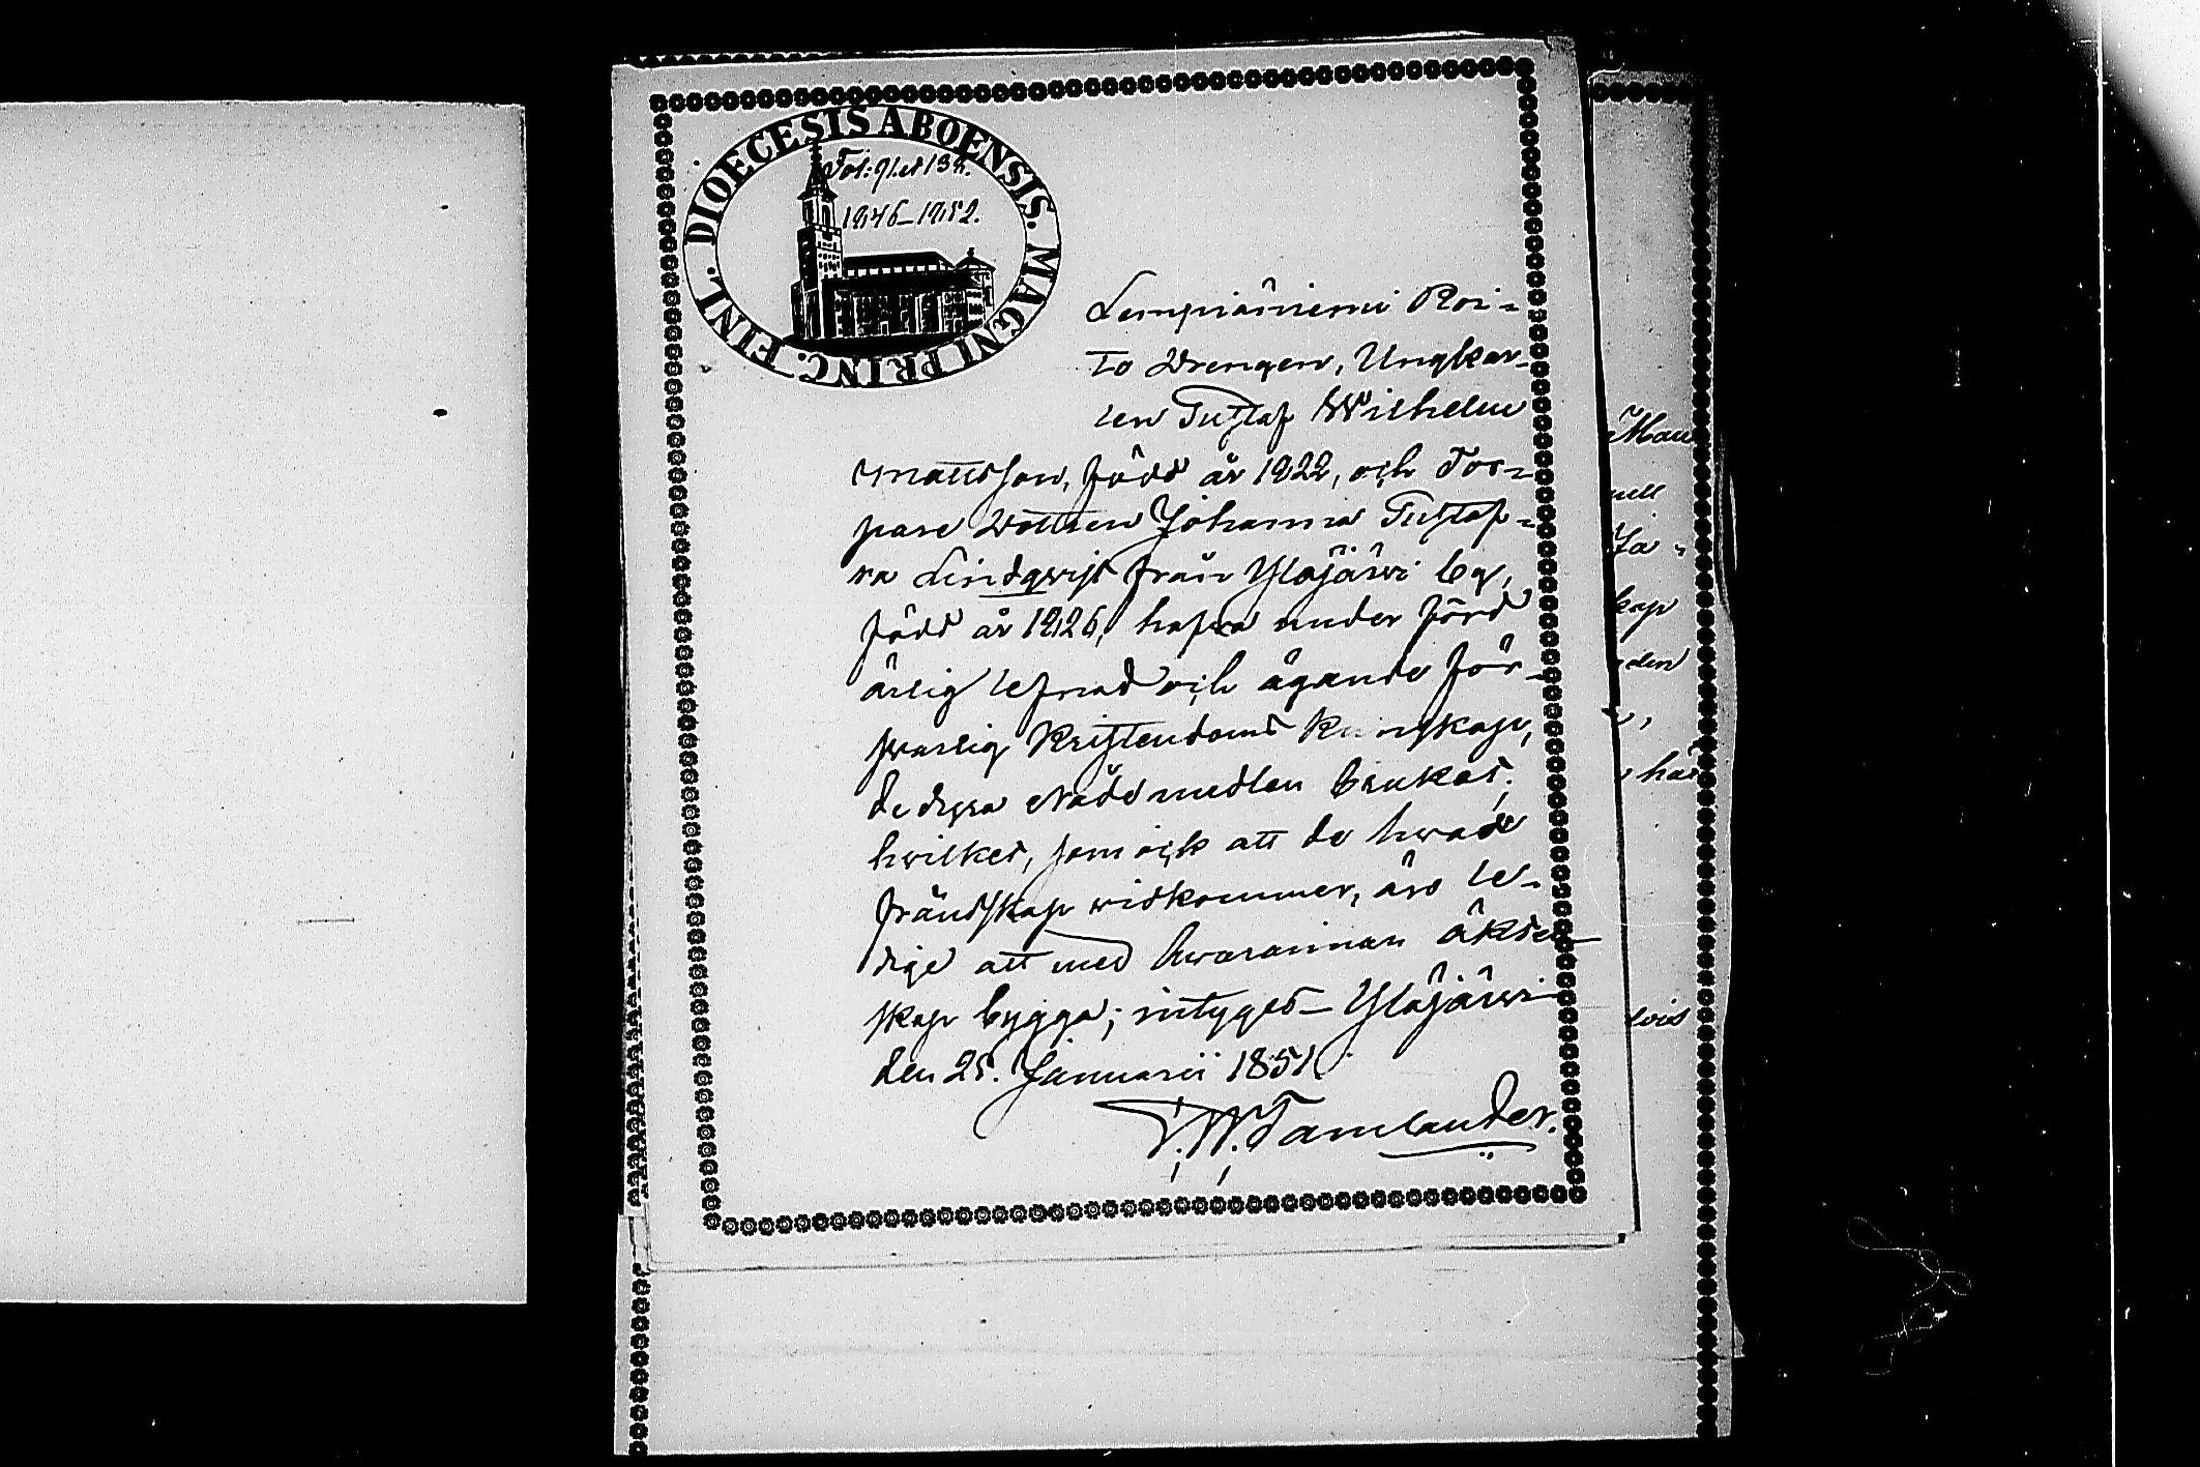 DIOECESIS ABOENSIS. MAGNI PRINC. FINL.
Fol: 91. et 132.
1846–1852.
Lempiäniemi Roi-
to Drengen, Ungkar-
len Gustaf Wilhelm
Mattsson, född år 1822, och Tor-
pare Dottren Johanna Gustaf-
va Lindqvist från Ylöjärwi by,
född år 1826, hafwa under förd
ärlig lefnad och ägande för-
swarlig Kristendoms kunskap,
de dyra Nådemedlen brukat;
hwilket, som ock att de hwad
frändskap widkommer, äro le-
dige att med hwarannan äkten-
skap bygga; intygas Ylöjärwi
den 25. Januarii 1851.
Tamlander.
Man
nell
Ja-
kap
den
har